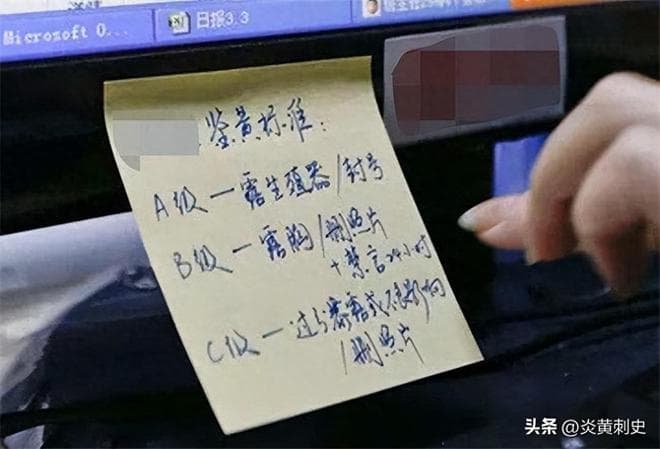 Microsoft O...
日报3.3
鉴黄标准:
A级—露生殖器/封号
B级—露胸/删照片
+禁言24小时
C级—过分暴露或不良影响
/删照片
头条 @炎黄刺史